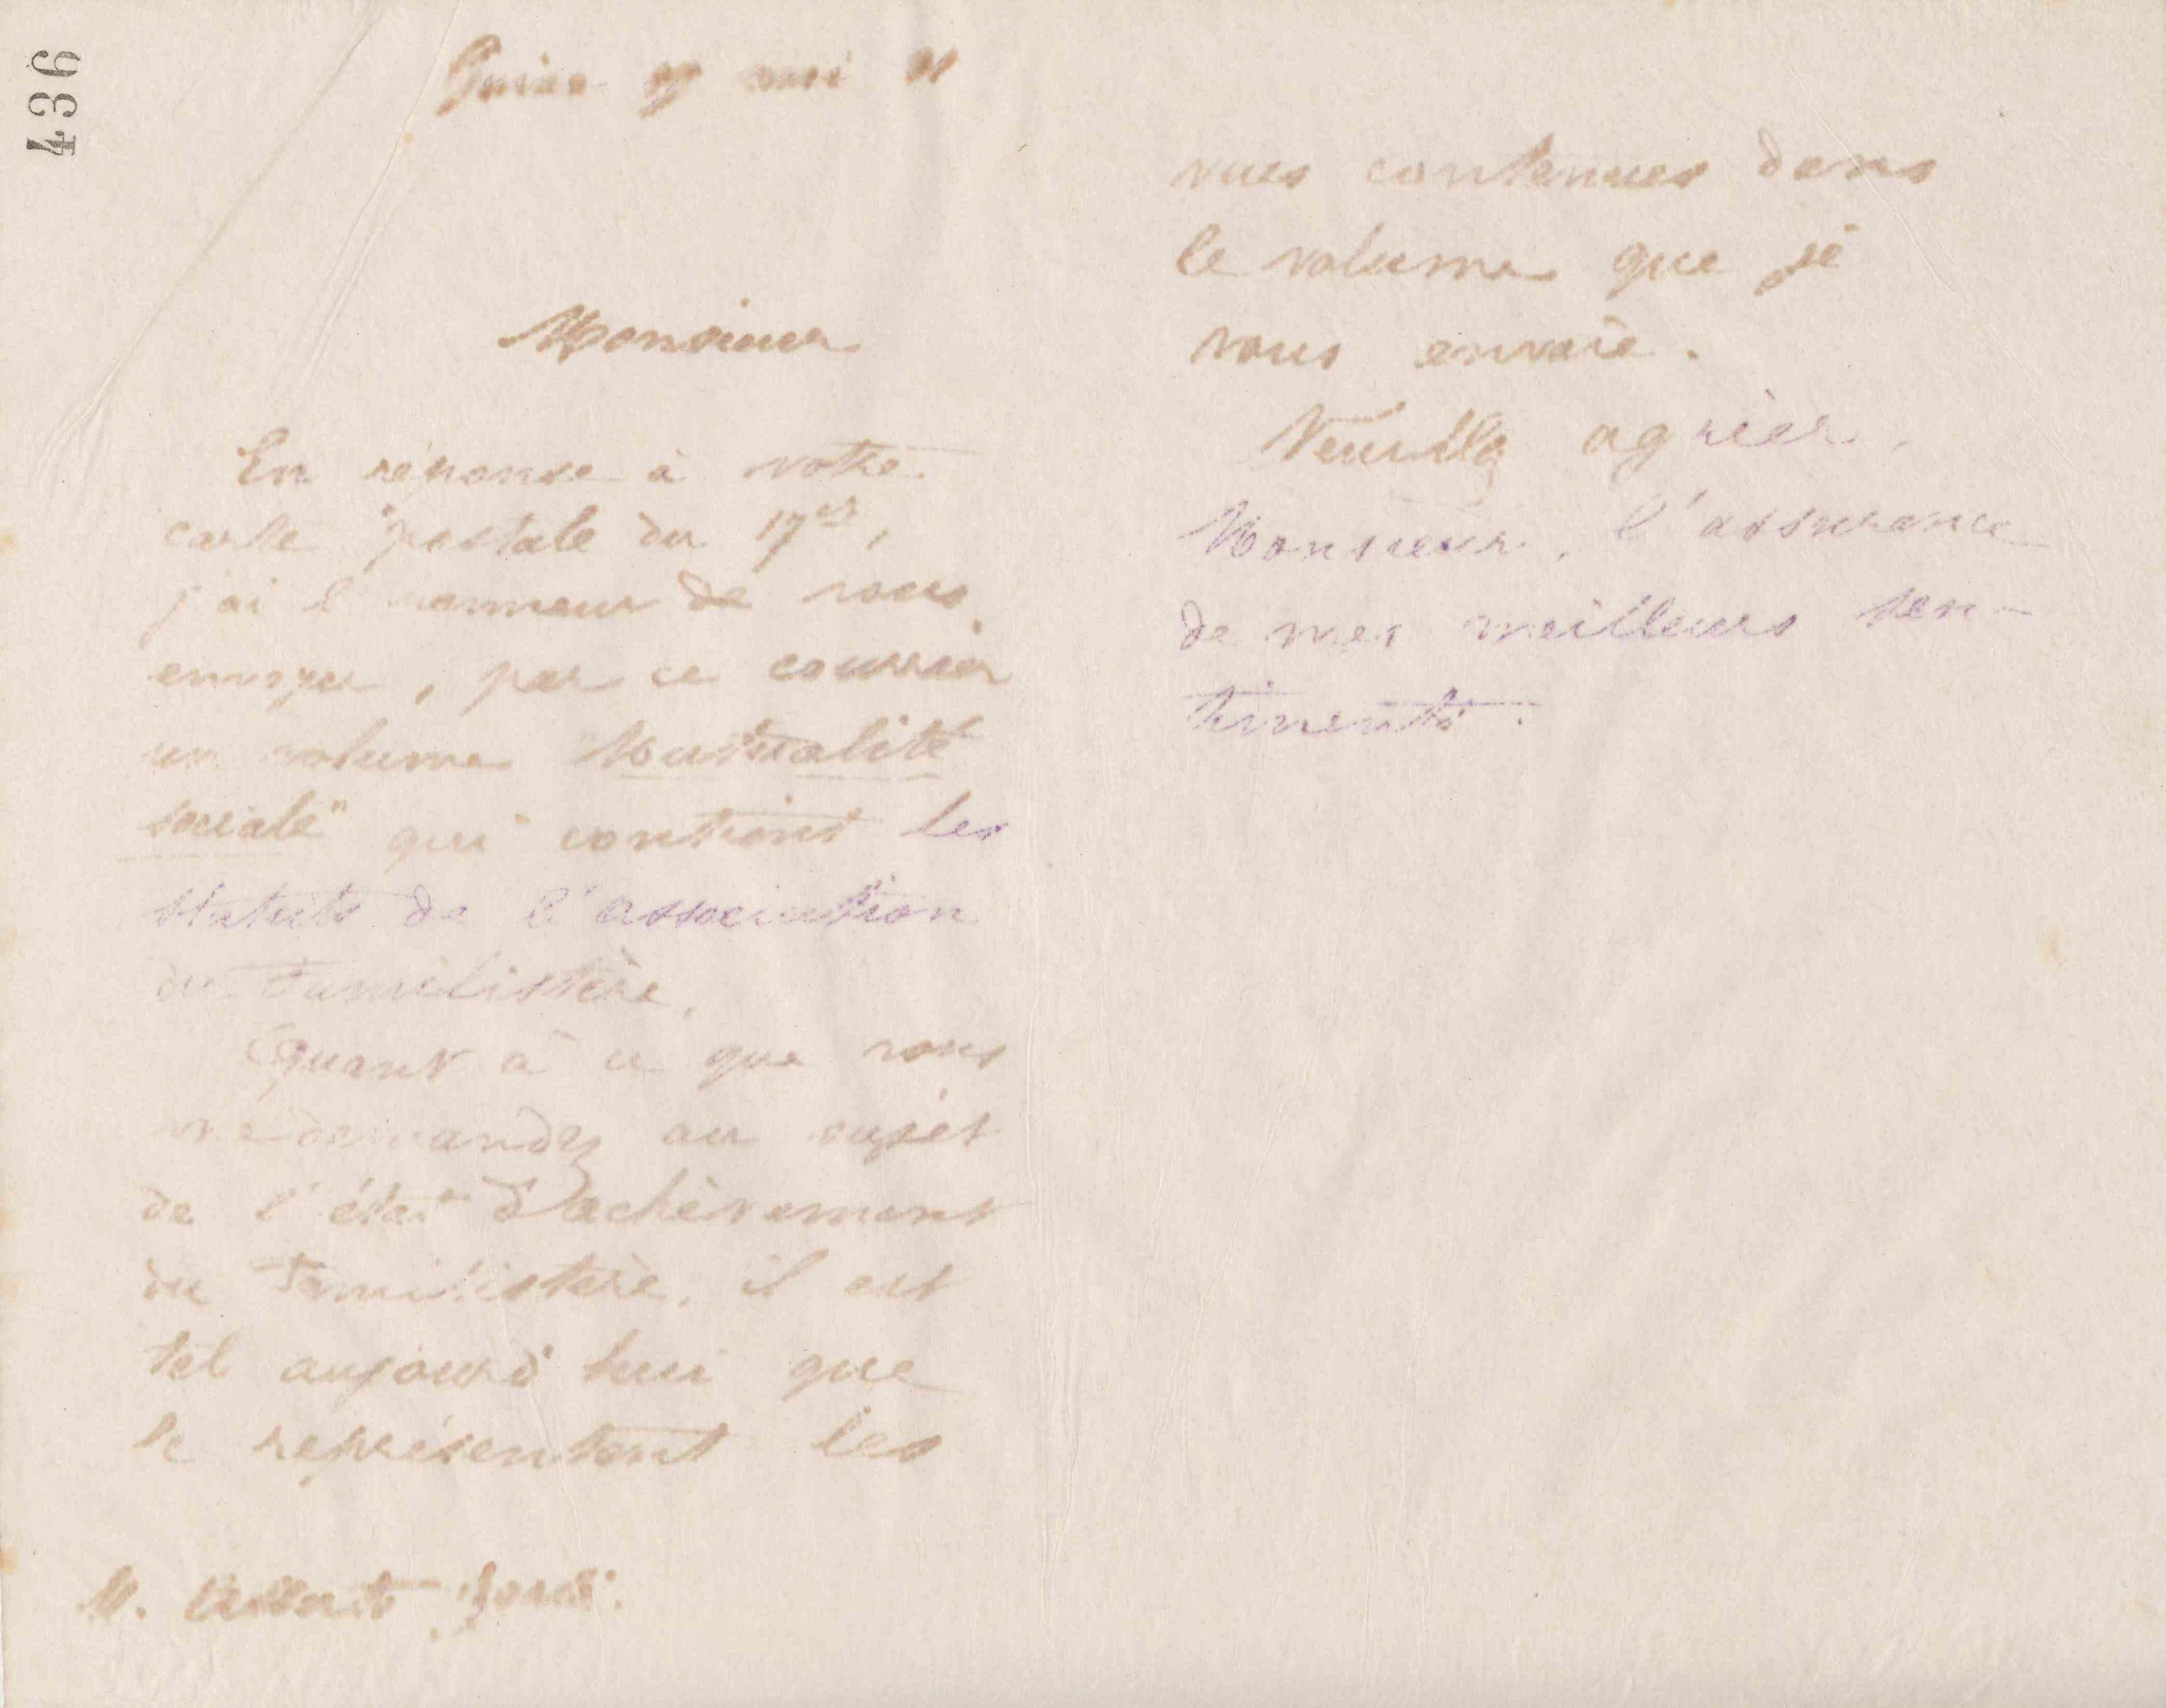 436
Guise mai
Monsieur
En réponse à votre
carte postale du 17 ct,
j'ai l'honneur de vous
envoyer, par ce courrier
un volume "Mutualité
sociale" qui contient les
statuts de l'association
du Familistère.
Quant à ce que vous
me demandez au sujet
de l'état d'achèvement
du Familistère, il est
tel aujourd'hui que
le représentent les
M.
vues contenues dans
le volume que je
vous envoie.
Veuillez agréer,
Monsieur, l'assurance
de mes meilleurs sen-
timents.